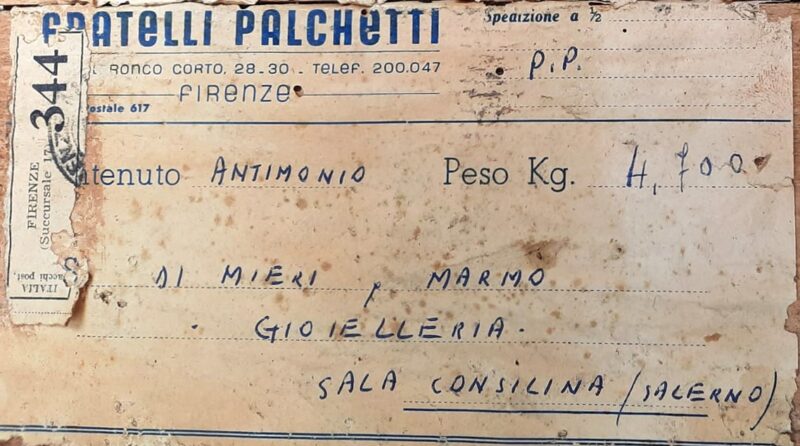 FRATELLI PALCHETTI
Spedizione a ½
RONCO CORTO, 28-30 - TELEF. 200.047
P.P.
FIRENZE
ostale 617
344
FIRENZE
(Succursale 17
ITALIA
acchi post,
ntenuto ANTIMONIO Peso Kg. 4,700
DI MIERI MARMO
GIOIELLERIA.
SALA CONSILINA (SALERNO)